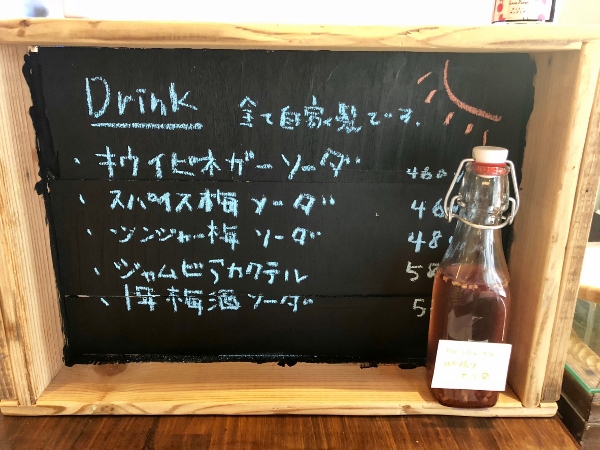 Drink 全て自家製です。
・キウイビネガーソーダ 460
・スパイス梅ソーダ 46
・ジンジャー梅ソーダ 48
・ジャムビアカクテル 58
・梅酒ソーダ 5